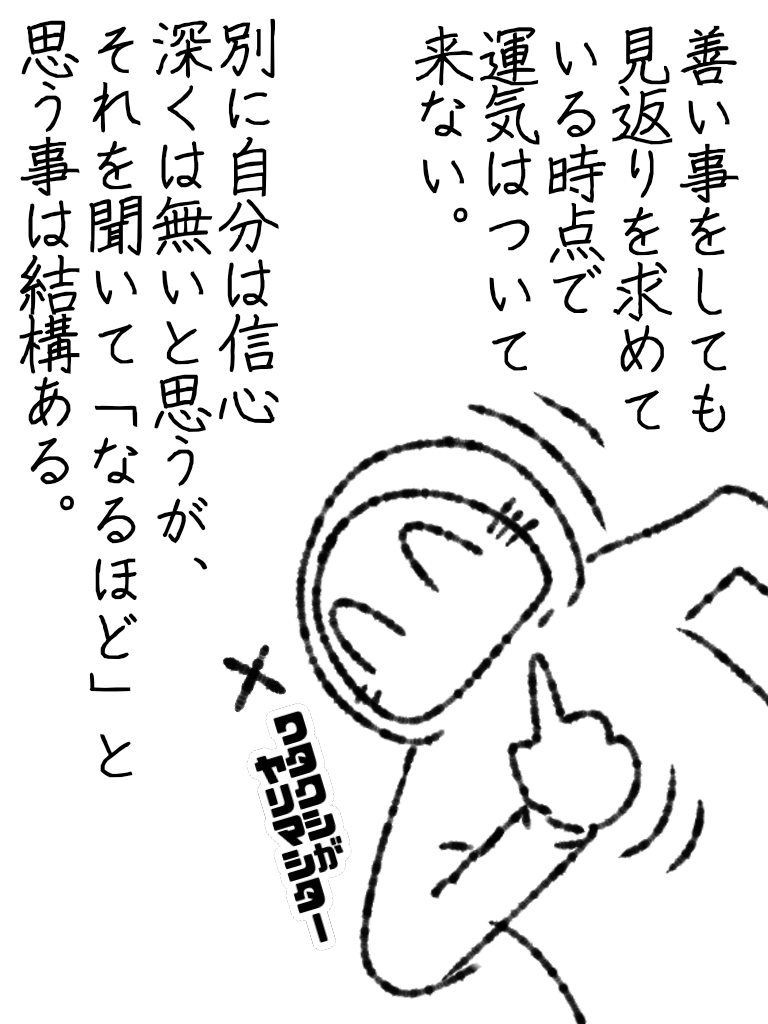 善い事をしても
見返りを求めて
いる時点で
運気はついて
来ない。
別に自分は信心
深くは無いと思うが、
それを聞いて「なるほど」と
思う事は結構ある。
ワタクシが
ヤリマシター